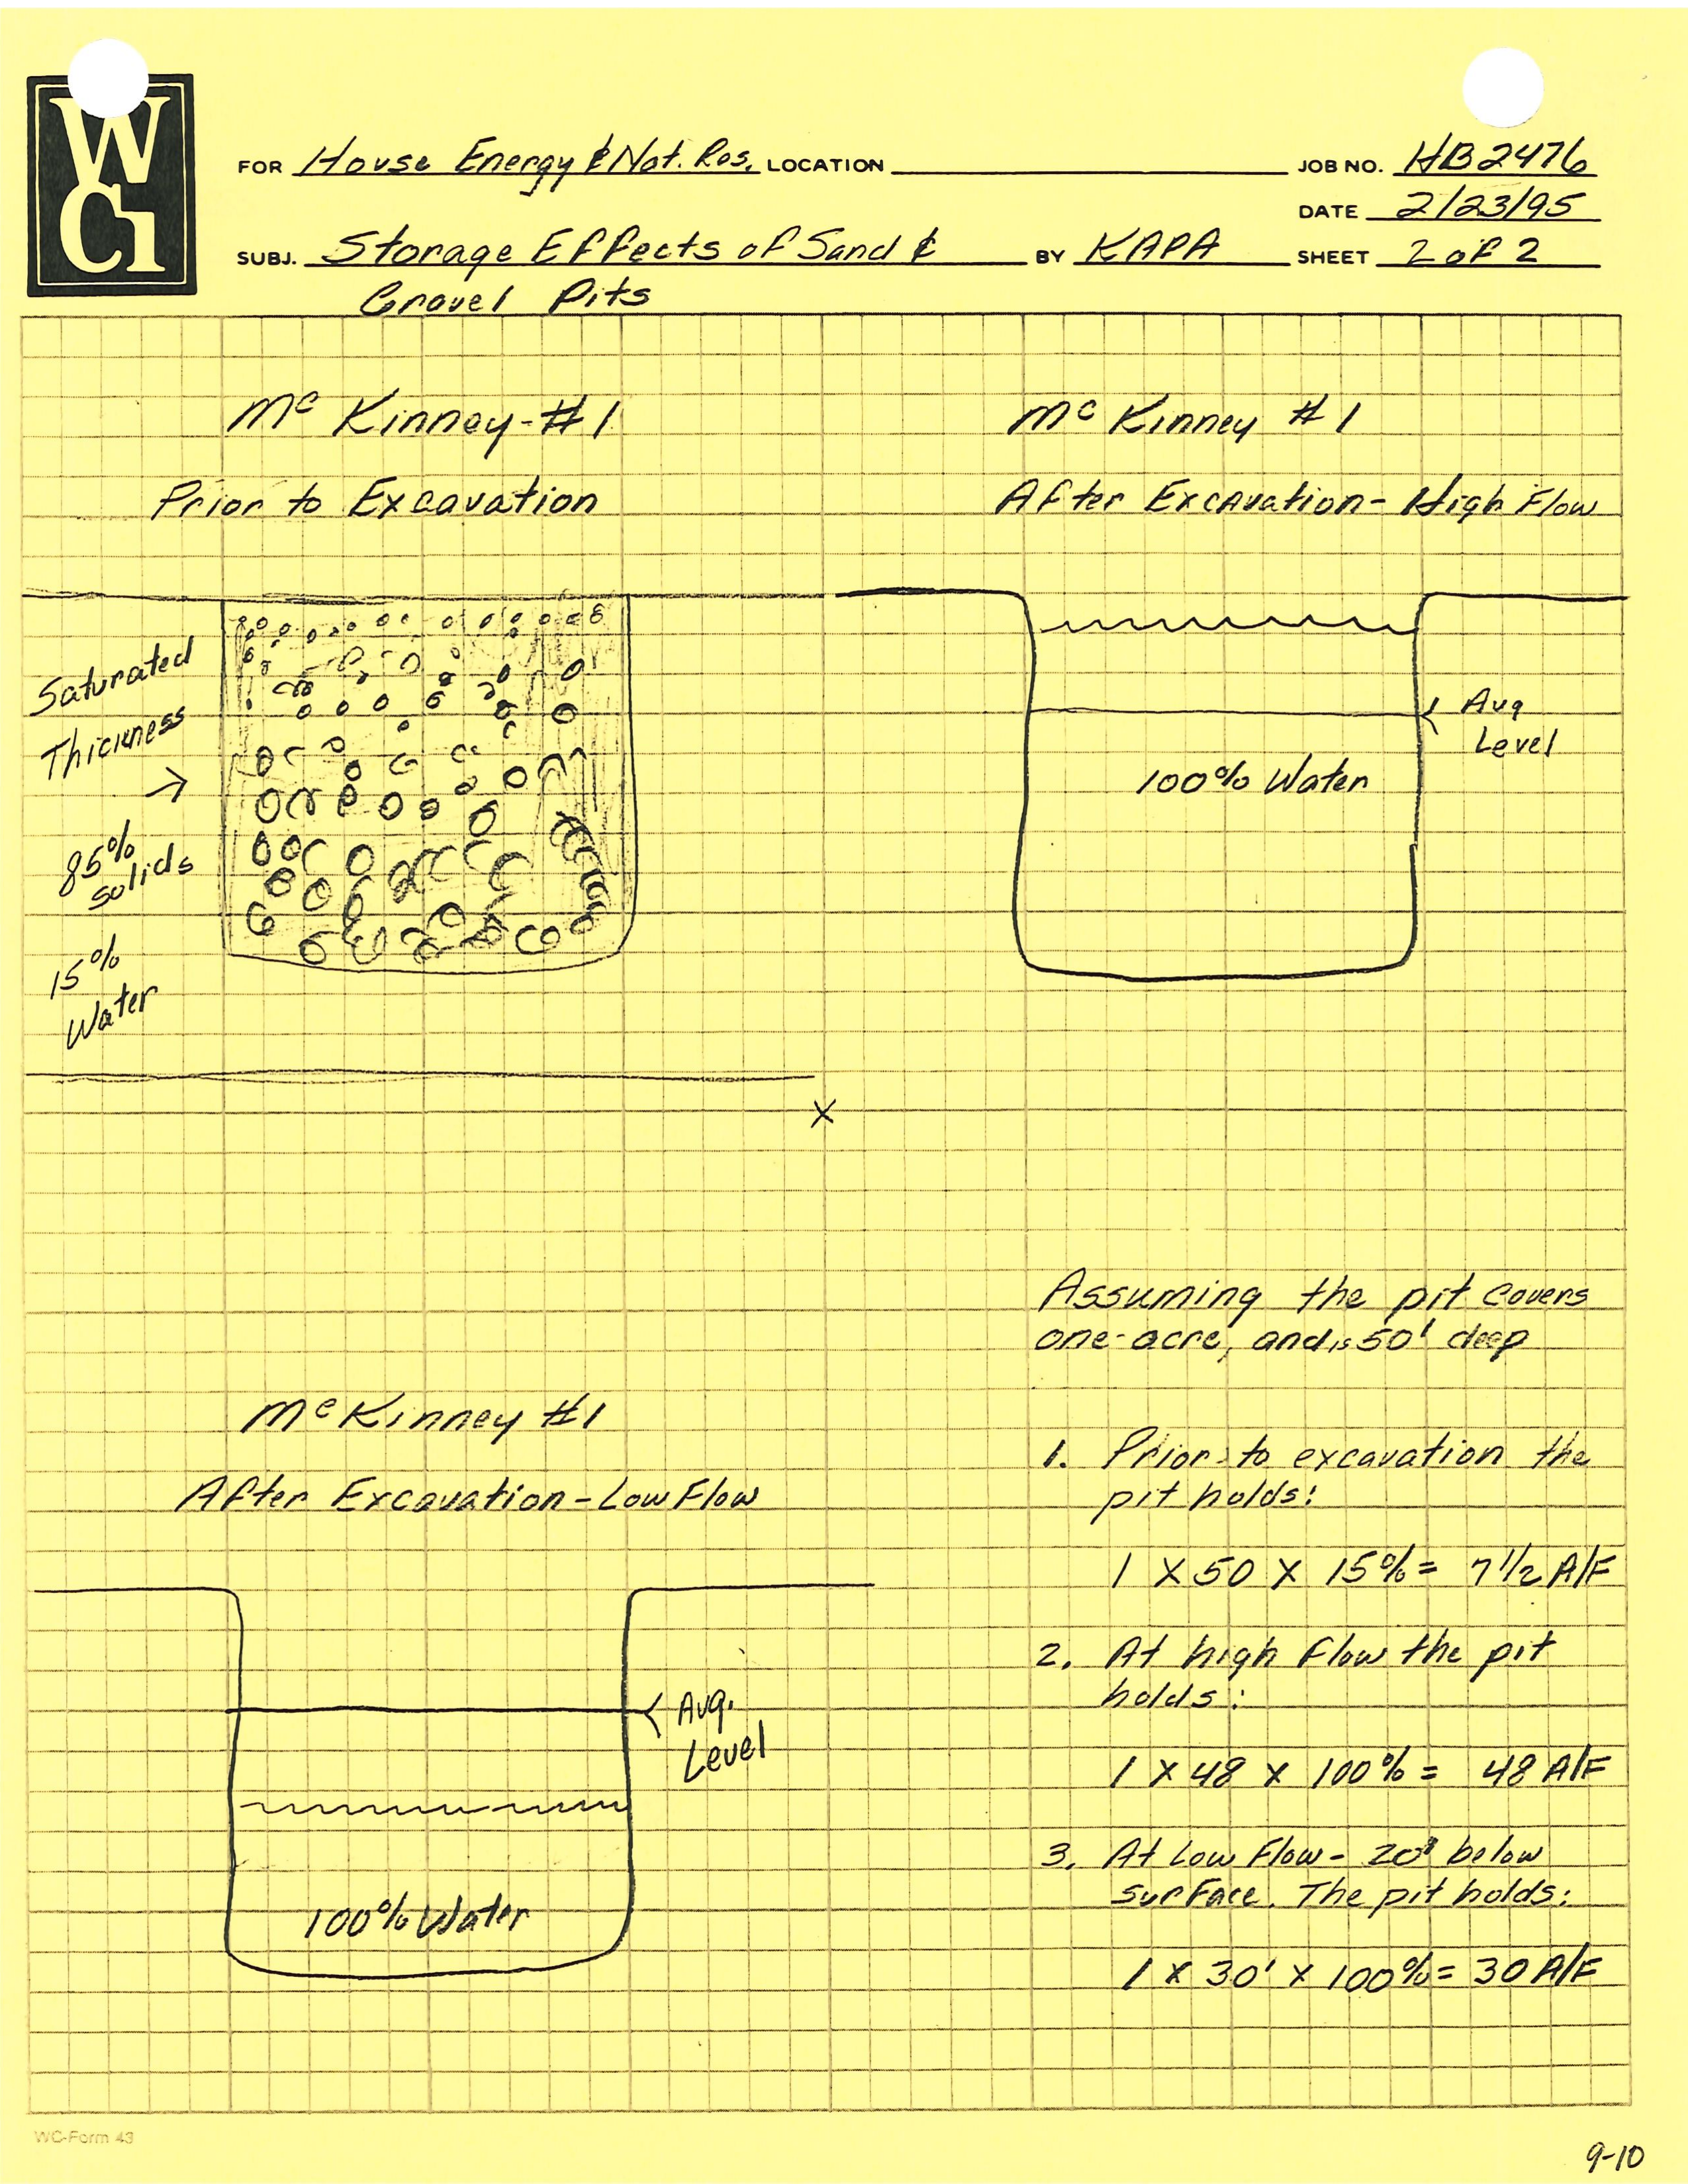 WCI
FOR House Energy & Nat. Res. LOCATION
JOB NO. HB2476
DATE 2/23/95
SUBJ. Storage Effects of Sand &
Gravel Pits
BY KAPA
SHEET 2 of 2
Mc Kinney-#1
Prior to Excavation
Saturated
Thickness
→
85%
solids
15%
Water
Mc Kinney #1
After Excavation- High Flow
Avg
Level
100% Water
X
Mc Kinney #1
After Excavation-Low Flow
Avg.
Level
100% Water
Assuming the pit covers
one-acre, and is 50' deep
1. Prior to excavation the
pit holds:
1 X 50 X 15% = 7 1/2 A/F
2. At high Flow the pit
holds:
1 X 48 X 100% = 48 A/F
3. At Low Flow- 20' below
surface. The pit holds:
1 X 30' X 100% = 30 A/F
WC-Form 43
9-10